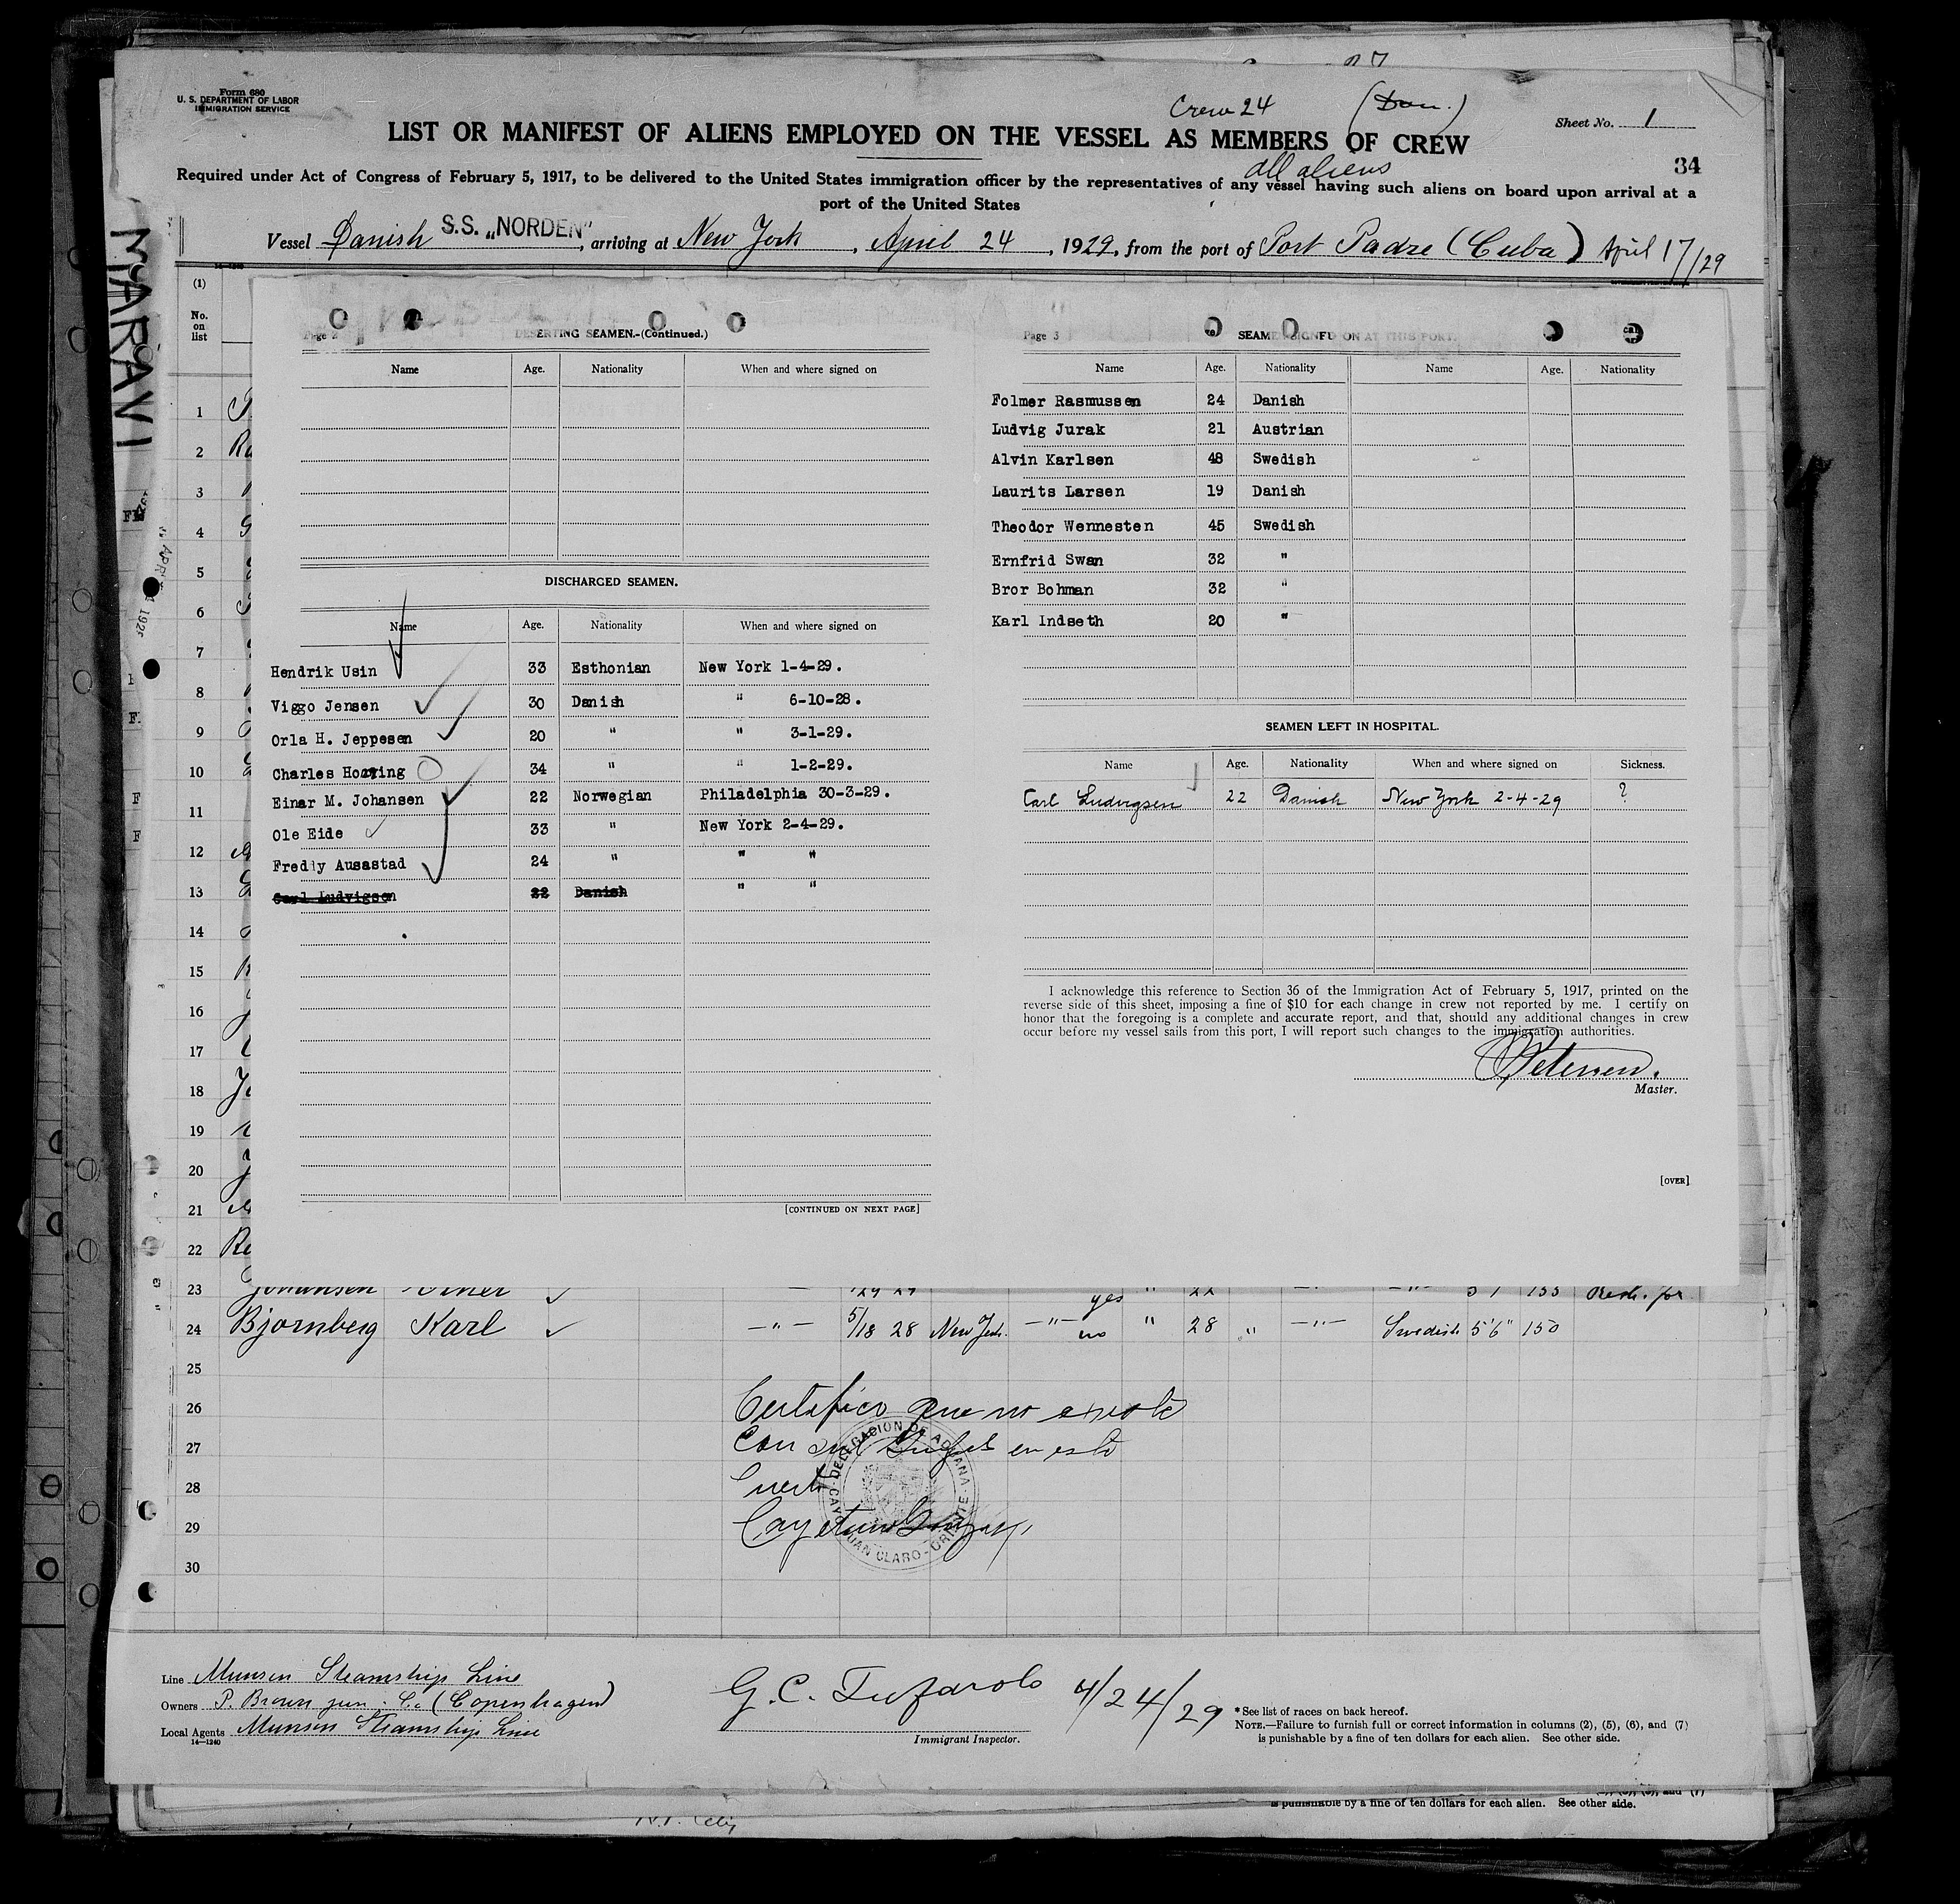 Form 680
U. S. DEPARTMENT OF LABOR
IMMIGRATION SERVICE
Crew 24 (Dan.)
Sheet No. 1
LIST OR MANIFEST OF ALIENS EMPLOYED ON THE VESSEL AS MEMBERS OF CREW
all aliens
34
Required under Act of Congress of February 5, 1917, to be delivered to the United States immigration officer by the representatives of any vessel having such aliens on board upon arrival at a
port of the United States
Vessel Danish S.S. „NORDEN", arriving at New York, April 24, 1929, from the port of Port Padre (Cuba) April 17/29
MARAVI
(1)
No.
on
list
Page 2 DESERTING SEAMEN.-(Continued.)
Name Age. Nationality When and where signed on
DISCHARGED SEAMEN.
Name Age. Nationality When and where signed on
Hendrik Usin 33 Esthonian New York 1-4-29.
Viggo Jensen 30 Danish " 6-10-28.
Orla H. Jeppesen 20 " " 3-1-29.
Charles Horring 34 " " 1-2-29.
Einar M. Johansen 22 Norwegian Philadelphia 30-3-29.
Ole Eide 33 " New York 2-4-29.
Freddy Ausastad 24 " " "
Carl Ludvigsen 22 Danish " "
[CONTINUED ON NEXT PAGE]
Page 3 SEAMEN SIGNED ON AT THIS PORT.
Name Age. Nationality Name Age. Nationality
Folmer Rasmussen 24 Danish
Ludvig Jurak 21 Austrian
Alvin Karlsen 48 Swedish
Laurits Larsen 19 Danish
Theodor Wennesten 45 Swedish
Ernfrid Swan 32 "
Bror Bohman 32 "
Karl Indseth 20 "
SEAMEN LEFT IN HOSPITAL.
Name Age. Nationality When and where signed on Sickness.
Carl Ludvigsen 22 Danish New York 2-4-29 ?
I acknowledge this reference to Section 36 of the Immigration Act of February 5, 1917, printed on the
reverse side of this sheet, imposing a fine of $10 for each change in crew not reported by me. I certify on
honor that the foregoing is a complete and accurate report, and that, should any additional changes in crew
occur before my vessel sails from this port, I will report such changes to the immigration authorities.
Petersen.
Master.
[OVER]
1
2
3
4
5
6
7
8
9
10
11
12
13
14
15
16
17
18
19
20
21
22
23 Johansen yes " 22 5 7 155
24 Bjornberg Karl —"— 5/18 28 New York —"— no " 28 " —"— Swedish 5'6" 150
25
26
27
28
29
30
Certifico que no existe
Consul en este
DELEGACION DE ADUANA
CAYO JUAN CLARO - ORIENTE
Cayetano
Line Munson Steamship Line
Owners P. Brown jun. & Co (Copenhagen)
Local Agents Munson Steamship Line
14—1240
G. C. Tufarolo 4/24/29
Immigrant Inspector.
* See list of races on back hereof.
NOTE.—Failure to furnish full or correct information in columns (2), (5), (6), and (7)
is punishable by a fine of ten dollars for each alien. See other side.
is punishable by a fine of ten dollars for each alien. See other side.